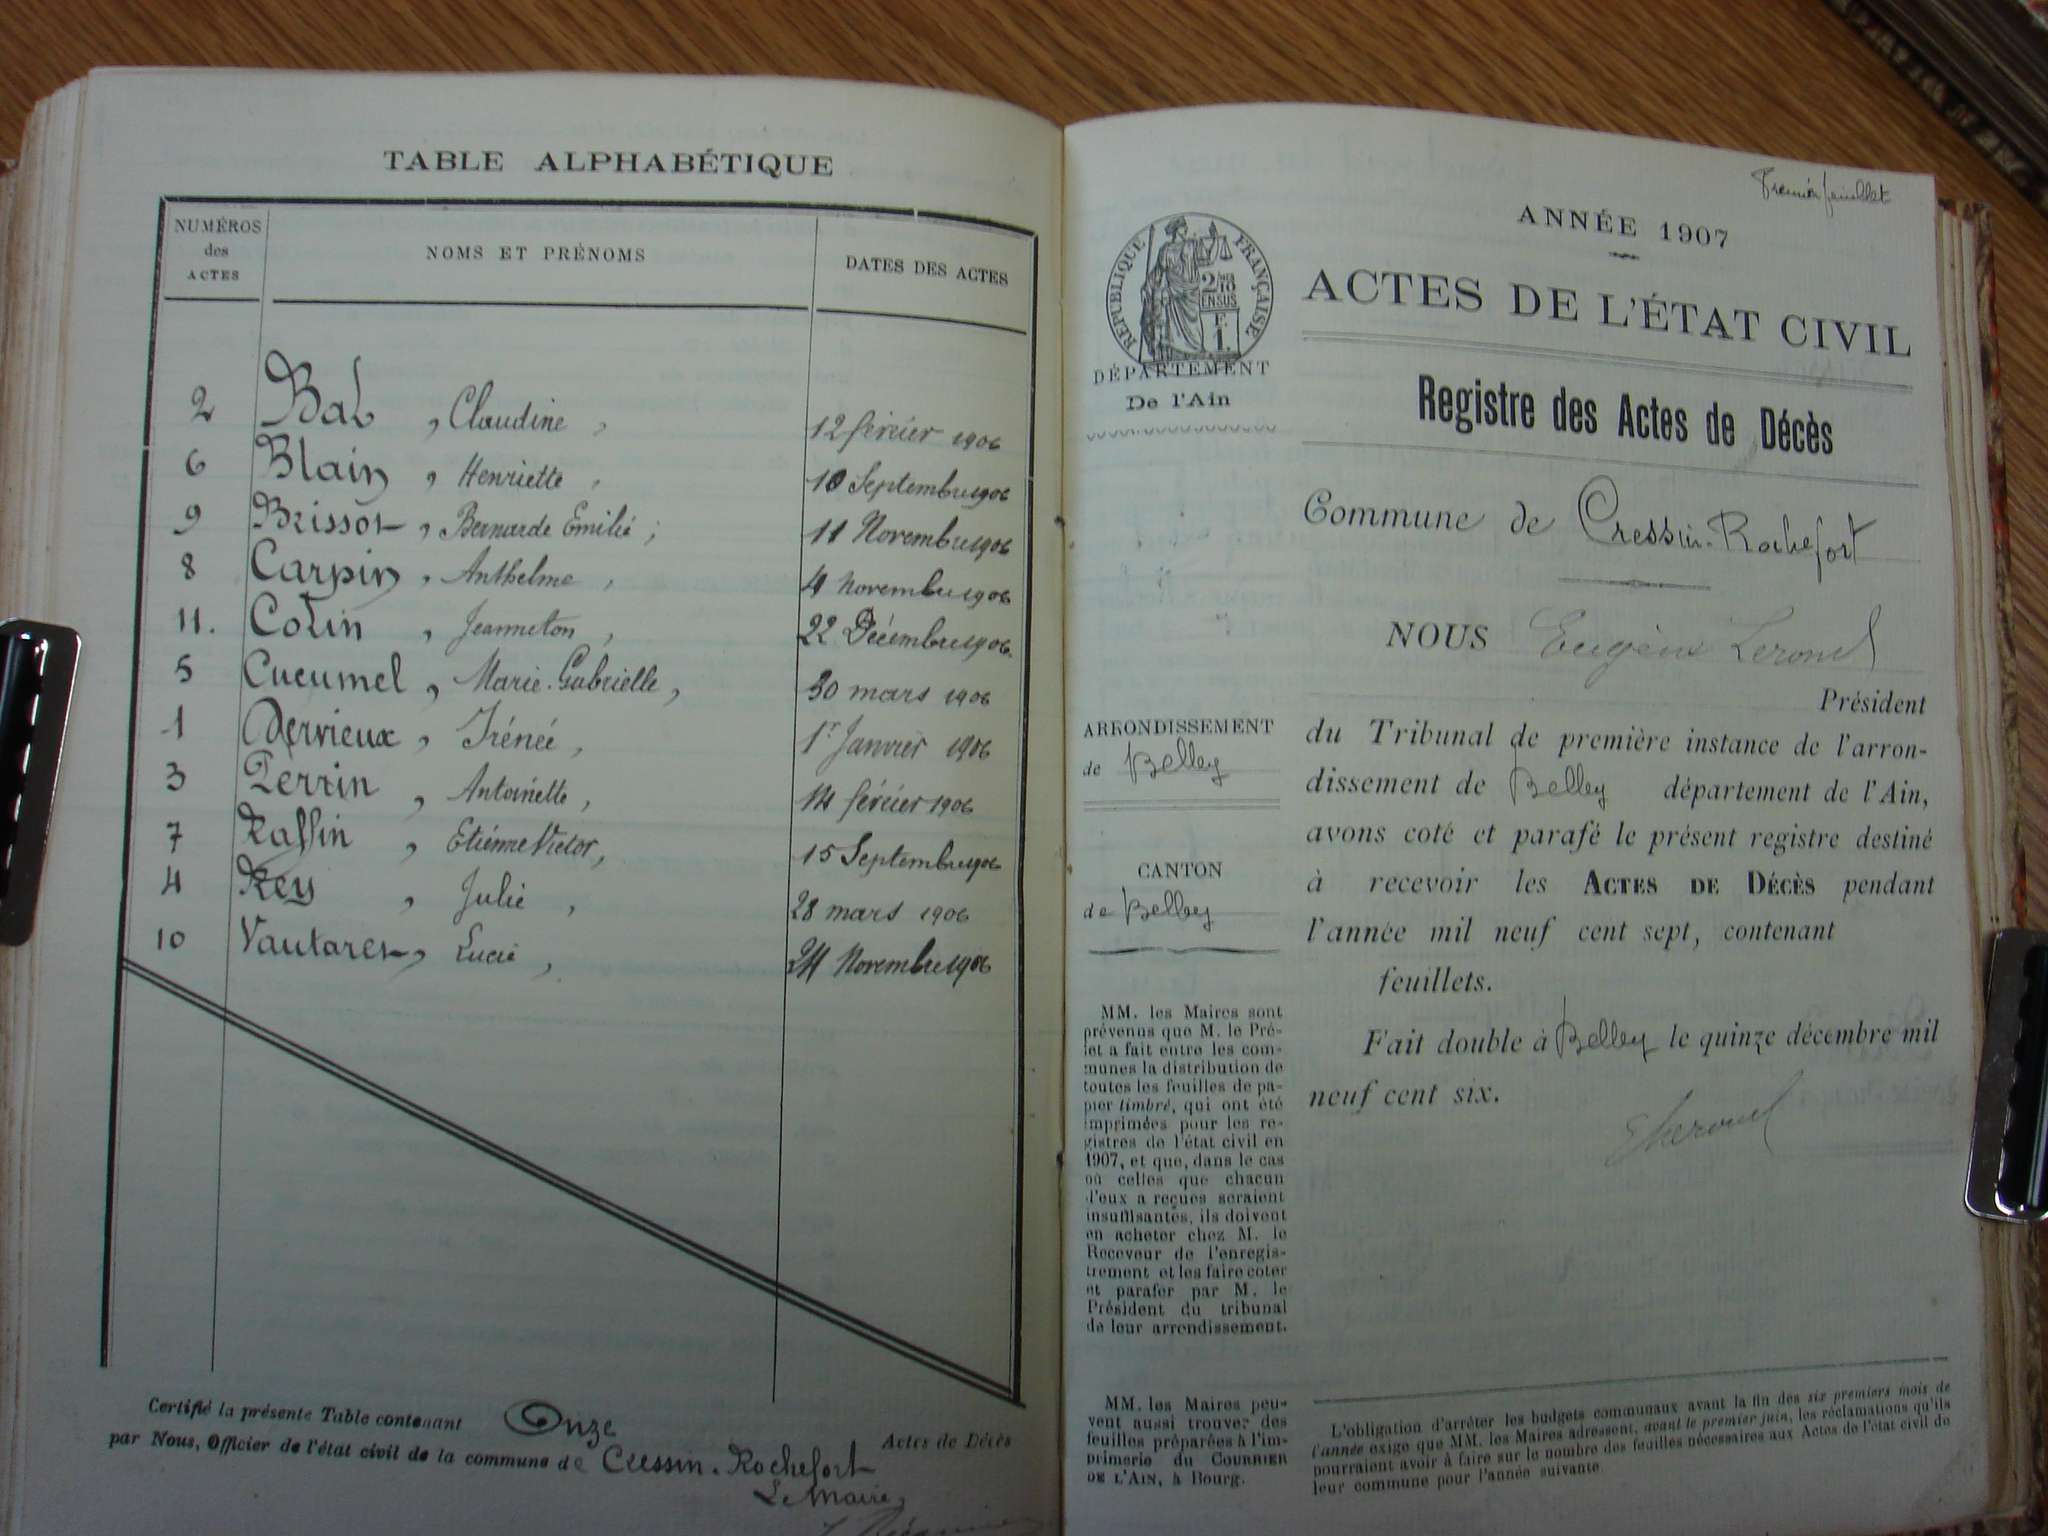 TABLE ALPHABÉTIQUE
NUMÉROS
des
ACTES
NOMS ET PRÉNOMS
DATES DES ACTES
2 Bal, Claudine, 12 février 1906
6 Blain, Henriette, 10 Septembre 1906
9 Brissot, Bernarde Emilie, 11 Novembre 1906
8 Carpin, Anthelme, 4 novembre 1906
11. Colin, Jeanneton, 22 Décembre 1906
5 Cucumel, Marie-Gabrielle, 30 mars 1906
1 Dervieux, Irénée, 1r Janvier 1906
3 Perrin, Antoinette, 14 février 1906
7 Raffin, Etienne Victor, 15 Septembre 1906
4 Rey, Julie, 28 mars 1906
10 Vautaret, Lucie, 24 Novembre 1906
Certifié la présente Table contenant Onze Actes de Décès
par Nous, Officier de l'état civil de la commune de Cressin-Rochefort
Le Maire,
Premier feuillet
ANNÉE 1907
RÉPUBLIQUE FRANÇAISE
2/10
EN SUS
F.
1.
DÉPARTEMENT
De l'Ain
ACTES DE L'ÉTAT CIVIL
Registre des Actes de Décès
Commune de Cressin-Rochefort
NOUS Eugène
Président
ARRONDISSEMENT
de Belley
CANTON
de Belley
du Tribunal de première instance de l'arron-
dissement de Belley département de l'Ain,
avons coté et parafé le présent registre destiné
à recevoir les ACTES DE DÉCÈS pendant
l'année mil neuf cent sept, contenant
feuillets.
Fait double à Belley le quinze décembre mil
neuf cent six.
MM. les Maires sont
prévenus que M. le Pré-
fet a fait entre les com-
munes la distribution de
toutes les feuilles de pa-
pier timbré, qui ont été
imprimées pour les re-
gistres de l'état civil en
1907, et que, dans le cas
où celles que chacun
d'eux a reçues seraient
insuffisantes, ils doivent
en acheter chez M. le
Receveur de l'enregis-
trement et les faire coter
et parafer par M. le
Président du tribunal
de leur arrondissement.
MM. les Maires peu-
vent aussi trouver des
feuilles préparées à l'im-
primerie du COURRIER
DE L'AIN, à Bourg.
L'obligation d'arrêter les budgets communaux avant la fin des six premiers mois de
l'année exige que MM. les Maires adressent, avant le premier juin, les réclamations qu'ils
pourraient avoir à faire sur le nombre des feuilles nécessaires aux Actes de l'état civil de
leur commune pour l'année suivante.